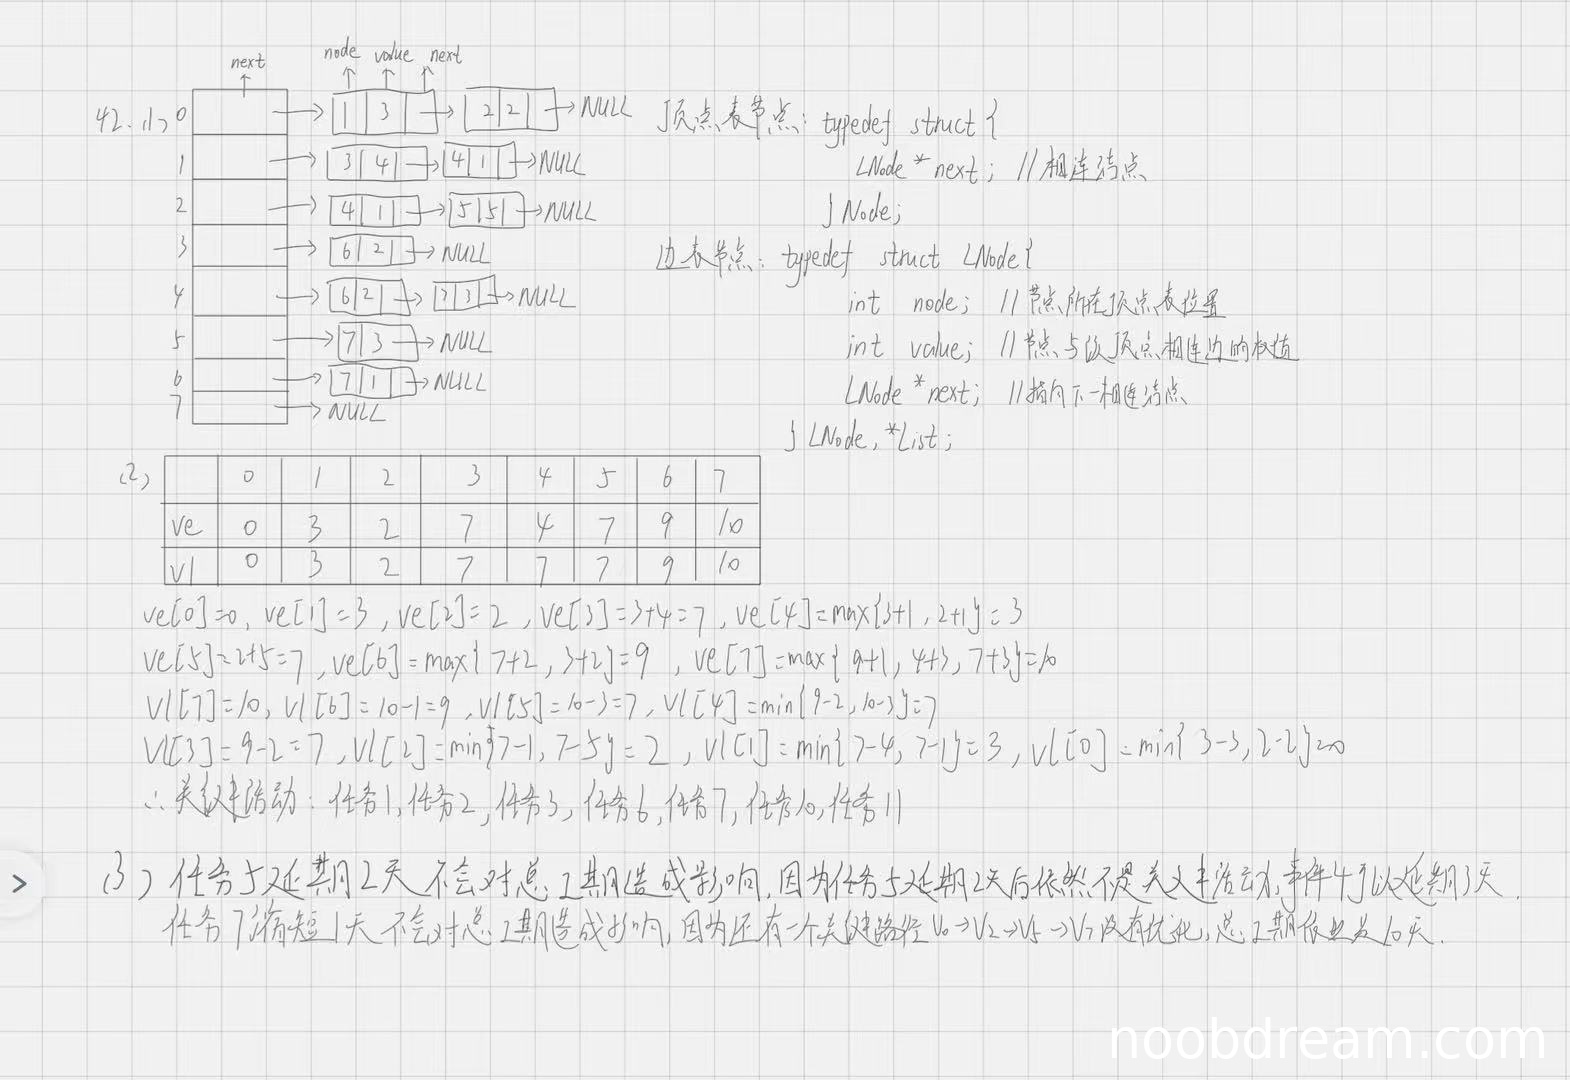 next
node value next
42.(1) 0 1 3 2 2 NULL 顶点表节点: typedef struct {
1 3 4 4 1 NULL LNode *next; //相连结点
2 4 1 5 5 NULL } Node;
3 6 2 NULL 边表节点: typedef struct LNode {
4 6 2 7 3 NULL int node; //节点所在顶点表位置
5 7 3 NULL int value; //节点与该顶点相连边的权值
6 7 1 NULL LNode *next; //指向下一相连结点
7 NULL
} LNode, *List;
(2) 0 1 2 3 4 5 6 7
ve 0 3 2 7 4 7 9 10
vl 0 3 2 7 7 7 9 10
ve[0]=0, ve[1]=3, ve[2]=2, ve[3]=3+4=7, ve[4]=max{3+1, 2+1}=3
ve[5]=2+5=7, ve[6]=max{7+2, 3+2}=9, ve[7]=max{9+1, 4+3, 7+3}=10
vl[7]=10, vl[6]=10-1=9, vl[5]=10-3=7, vl[4]=min{9-2, 10-3}=7
vl[3]=9-2=7, vl[2]=min{7-1, 7-5}=2, vl[1]=min{7-4, 7-1}=3, vl[0]=min{3-3, 2-2}=0
∴关键活动: 任务1, 任务2, 任务3, 任务6, 任务7, 任务10, 任务11
(3) 任务5延期2天不会对总工期造成影响, 因为任务5延期2天后依然不是关键活动, 事件4可以延期3天.
任务7缩短1天不会对总工期造成影响, 因为还有一个关键路径V0→V2→V5→V7没有优化, 总工期依然是10天.
noobdream.com